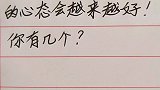 的心态会越来越好!
你有几个?